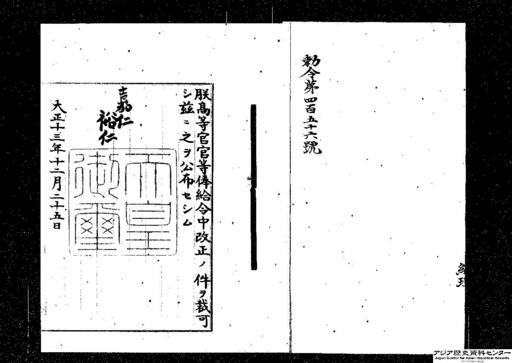 勅令第四百五十六號
朕高等官官等俸給令中改正ノ件ヲ裁可
シ茲ニ之ヲ公布セシム
嘉仁
裕仁
天皇御璽
大正十三年十二月二十五日
アジア歴史資料センター
Japan Center for Asian Historical Records